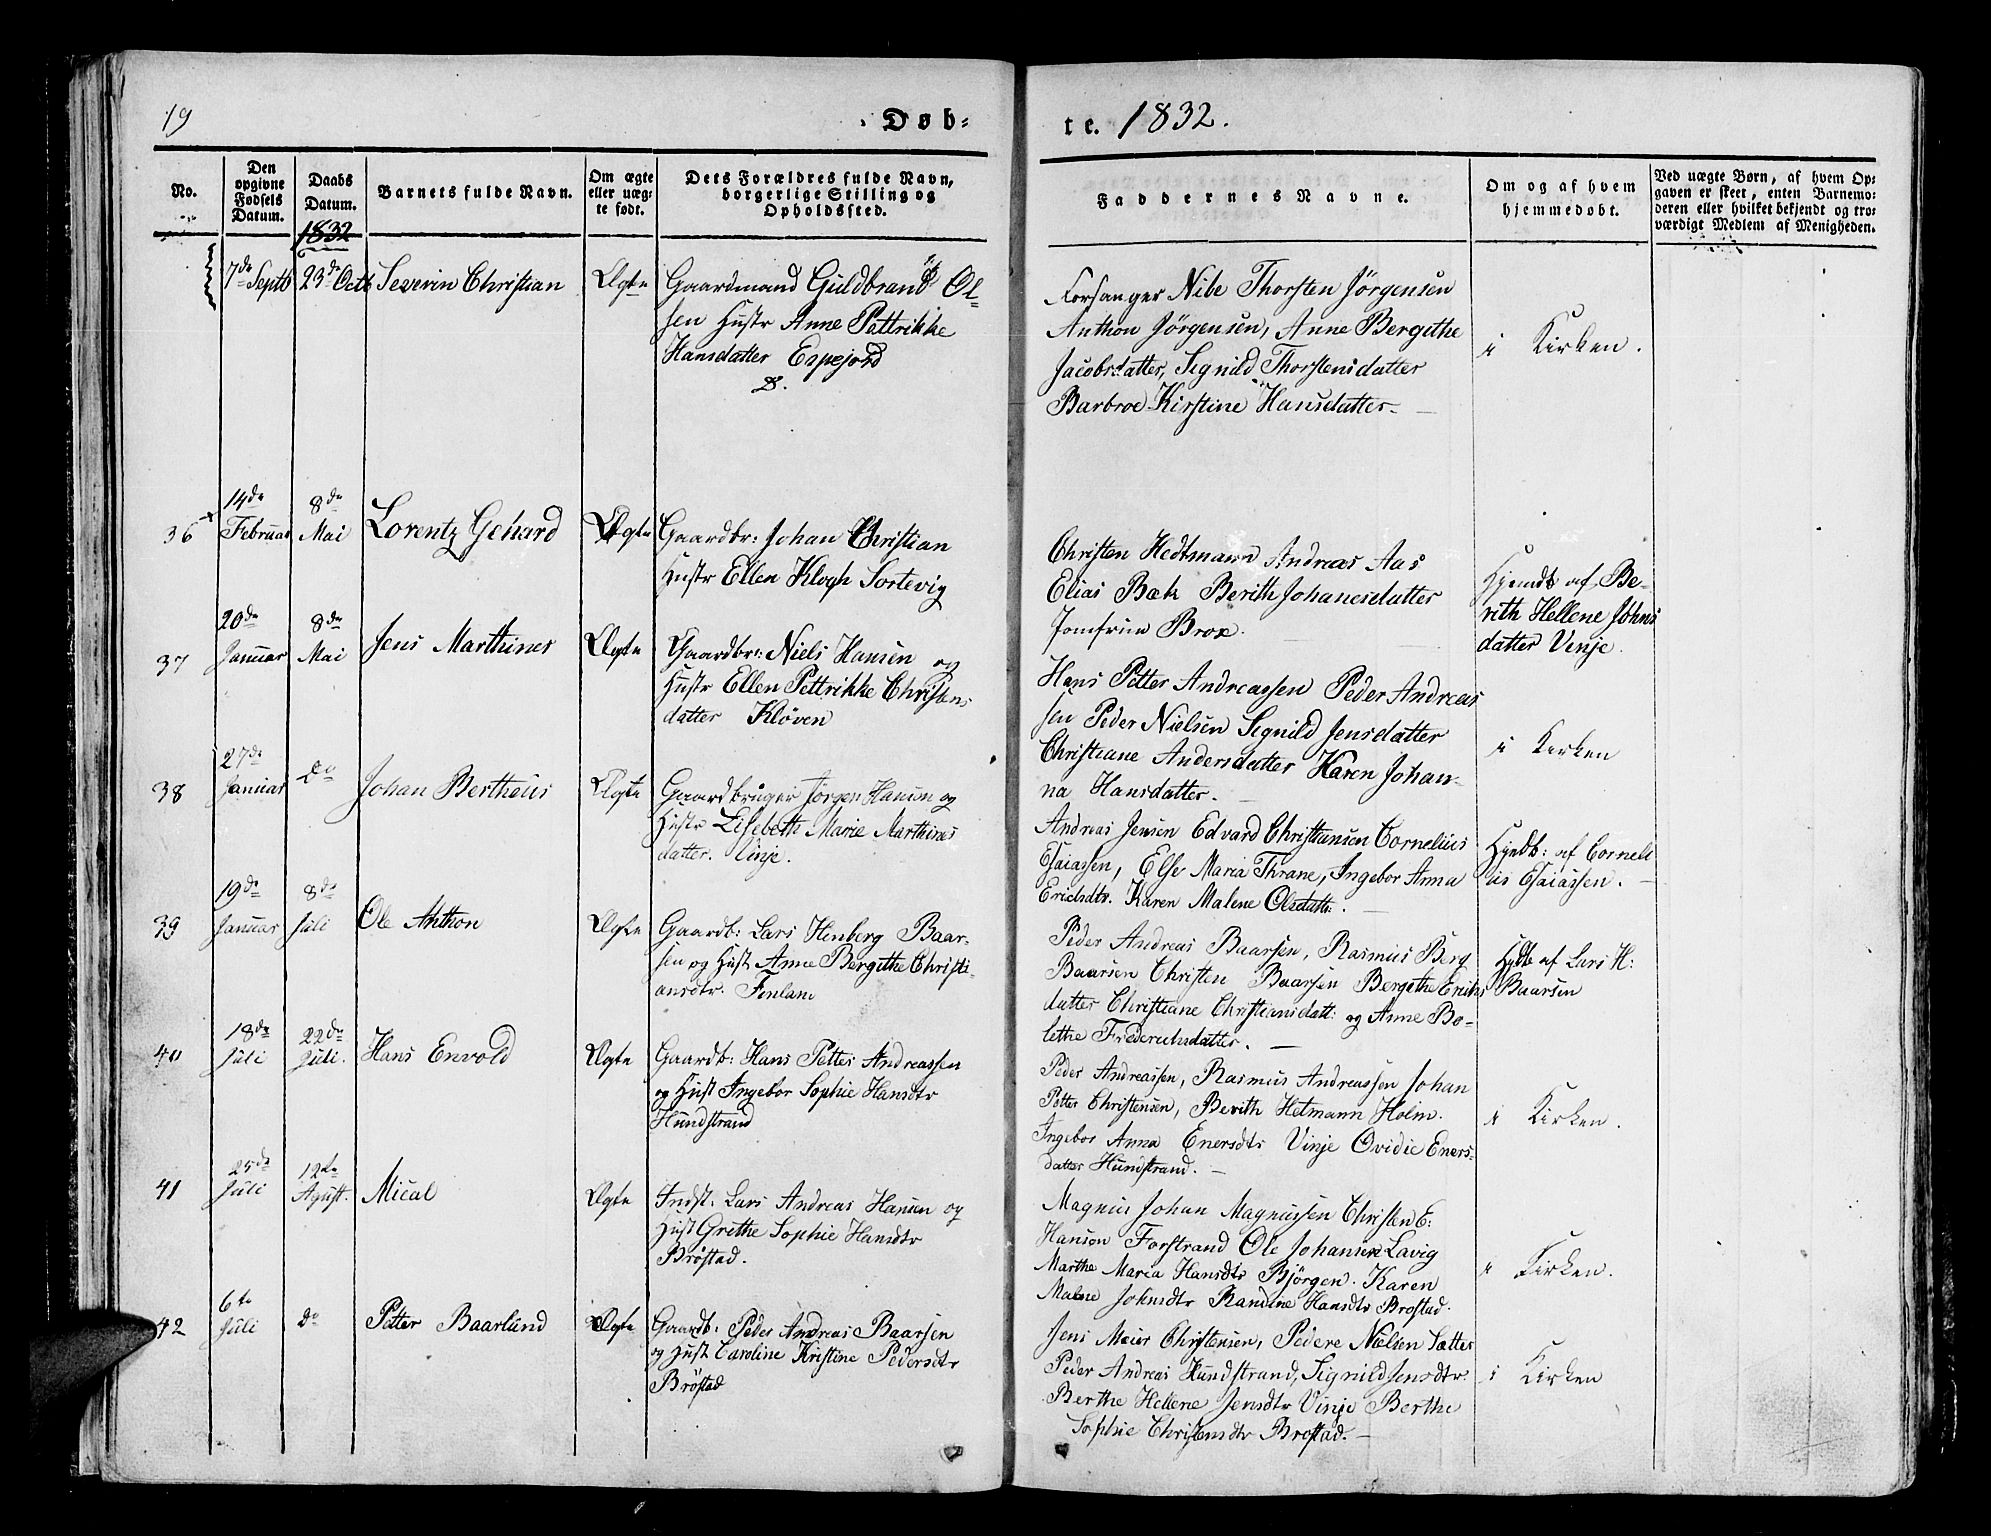 19
Døb-
te. 1832.
No.
Den opgivne Fødsels Datum.
Daabs Datum.
Barnets fulde Navn.
Om ægte eller uæg-te født.
Dets Forældres fulde Navn, borgerlige Stilling og Opholdssted.
Faddernes Navne.
Om og af hvem hjemmedøbt.
Ved uægte Børn, af hvem Op-gaven er skeet, enten Barnemo-deren eller hvilket bekjendt og tro-værdigt Medlem af Menigheden.
1832
7de Septb 23de Octb Severin Christian Ægte
Gaardmand Guldbrand Ol-
sen Hustr Anne Pettrikke
Hansdatter Espejord
Forsanger Nibe Thorsten Jörgensen
Anthon Jörgensen, Anne Bergithe
Jacobsdatter, Signild Thorstensdatter
Barbroe Kirstine Hansdatter.
i Kirken.
36 14de Februar 8de Mai Lorentz Gehard Ægte
Gaardbr: Johan Christian
Hustr Ellen Klogh Sortevig
Christen Hedtmann Andreas Aas
Elias Bæk Berith Johanesdatter
Jomfrue Brox.
Hjemdb af Be-
rith Hellene Johns
datter Vinje.
37 20de Januar 8de Mai Jens Marthines Ægte
Gaardbr: Niels Hansen og
Hustr Ellen Pettrikke Christens
datter Kløven
Hans Petter Andreassen Peder Andreas
sen Peder Nielsen Signild Jensdatter
Christiane Andersdatter Karen Johan-
na Hansdatter.
i Kirken
38 27de Januar do Johan Bertheus Ægte
Gaardbruger Jörgen Hansen og
Hustr Lisebeth Marie Marthines
datter. Vinje.
Andreas Jensen Edvard Christiansen Cornelius
Esaiassen, Else Maria Thrane, Ingebor Anna
Ericksdtr. Karen Malene Olsdatt.
Hjmdb: af Corneli
us Esaiassen.
39 19de Januar 8de Juli Ole Anthon Ægte
Gaardb: Lars Henberg Baar-
sen og Hust Anne Bergithe Christi-
ansdtr. Finland
Peder Andreas Baarsen, Rasmus Berg
Baarsen Christen Baarsen Bergithe Ericks
datter Christiane Christiansdatt: og Anne Bo-
lethe Frederichsdatter.
Hjdb af Lars H:
Baarsen
40 18de Juli 22de Juli. Hans Envold Ægte
Gaardb: Hans Petter Andreassen
og Hust Ingebor Sophie Hansdtr
Hundstrand
Peder Andreassen, Rasmus Andreassen Johan
Petter Christensen, Berith Hetmann Holm.
Ingebor Anna Enersdtr Vinje Ovidie Eners-
datter Hundstrand.
i Kirken.
41 25de Juli 12te Agust. Mical Ægte
Indst. Lars Andreas Hansen og
Hust Grethe Sophie Hansdtr
Brøstad.
Magnus Johan Magnussen Christen E:
Hanson Forstrand Ole Johansen Lavig
Marthe Maria Hansdtr Bjørgen. Karen
Malene Johnsdtr Randine Hansdtr Brostad.
i Kirken.
42 6te Juli do Petter Baarlund Ægte
Gaardb: Peder Andreas Baarsen
og Hust Caroline Kristine Pedersdtr
Brøstad
Jens Meier Christensen, Pedere Nielsen Sætter
Peder Andreas Hundstrand, Signild Jensdtr.
Berthe Hellene Jensdtr Vinje Berthe
Sophie Christensdtr Brostad.
i Kirken